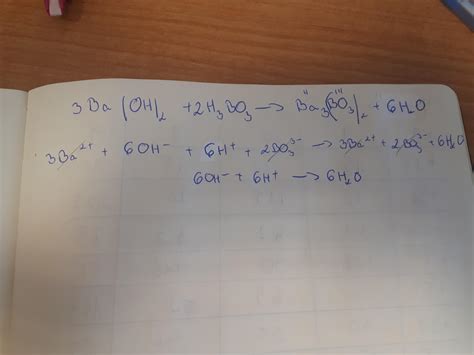 3Ba(OH)₂ + 2H₃BO₃ → Ba₃(BO₃)₂ + 6H₂O
3Ba²⁺ + 6OH⁻ + 6H⁺ + 2BO₃³⁻ → 3Ba²⁺ + 2BO₃³⁻ + 6H₂O
6OH⁻ + 6H⁺ → 6H₂O